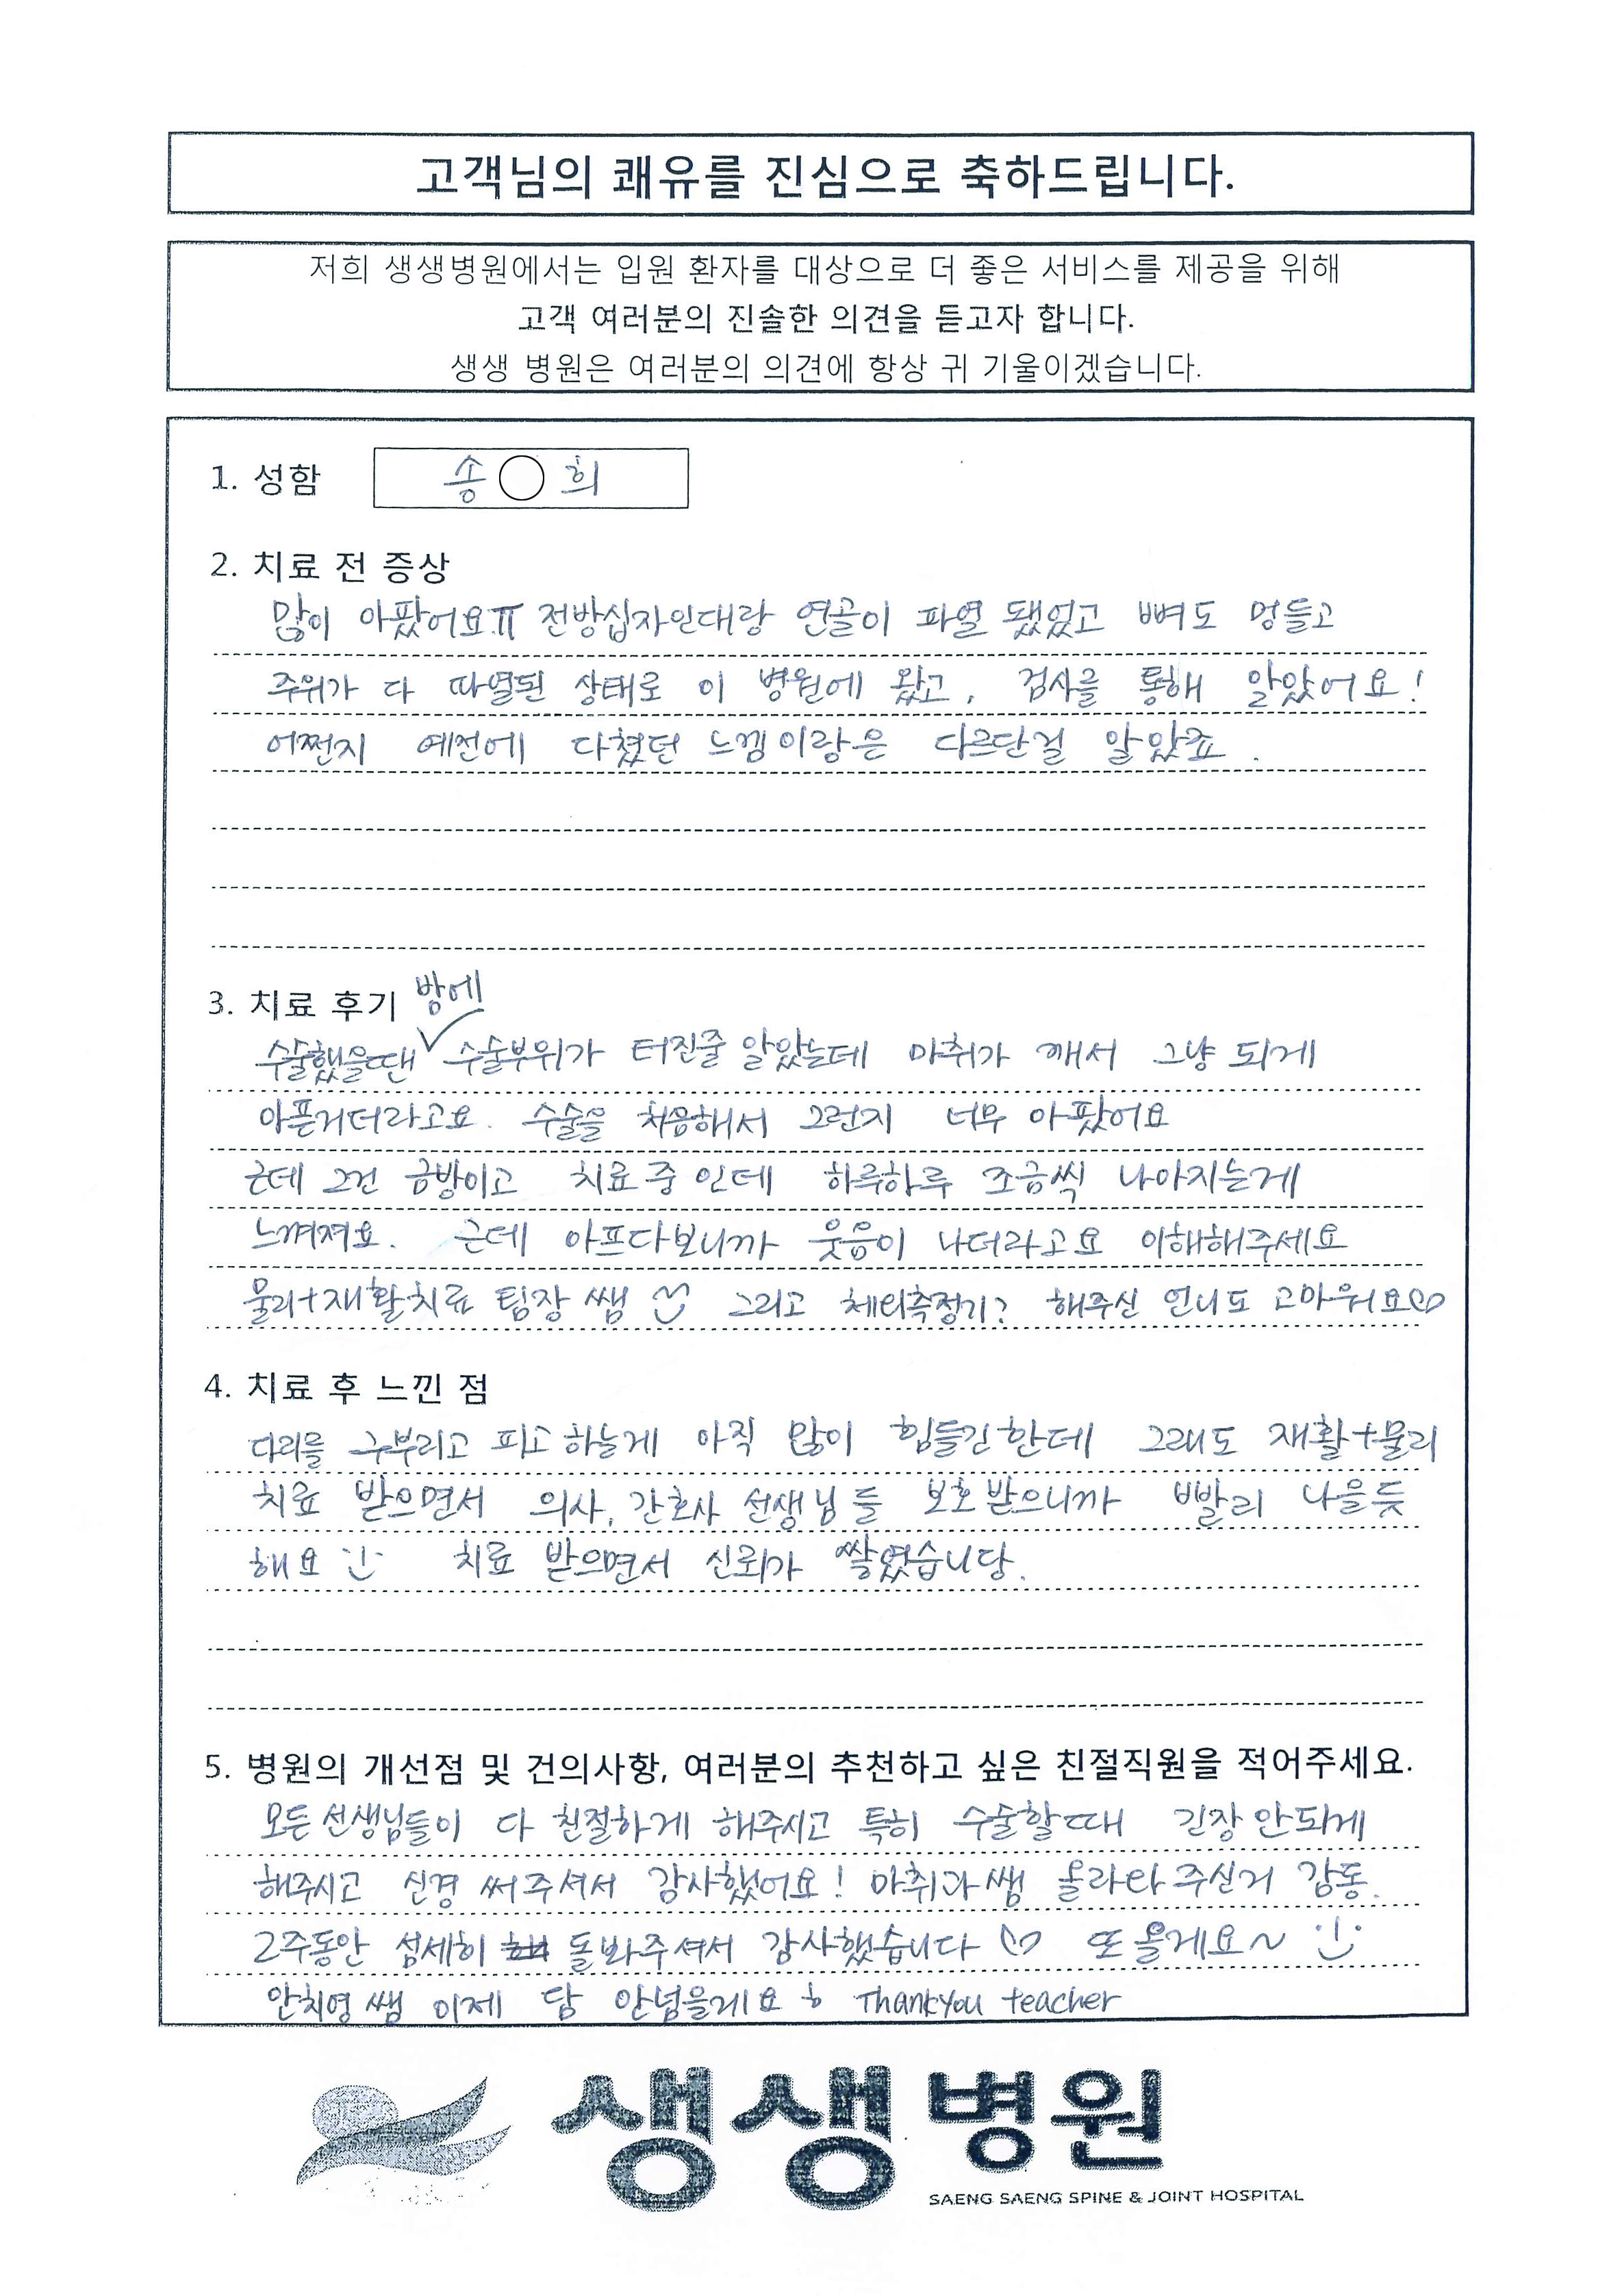 고객님의 쾌유를 진심으로 축하드립니다.
저희 생생병원에서는 입원 환자를 대상으로 더 좋은 서비스를 제공을 위해
고객 여러분의 진솔한 의견을 듣고자 합니다.
생생 병원은 여러분의 의견에 항상 귀 기울이겠습니다.
1. 성함 송○희
2. 치료 전 증상
많이 아팠어요ㅠ 전방십자인대랑 연골이 파열 됐었고 뼈도 멍들고
주위가 다 파열된 상태로 이 병원에 왔고, 검사를 통해 알았어요!
어쩐지 예전에 다쳤던 느낌이랑은 다르단걸 알았죠.
3. 치료 후기
방에
수술했을땐 수술부위가 터진줄 알았는데 마취가 깨서 그냥 되게
아픈거더라고요. 수술을 처음해서 그런지 너무 아팠어요
근데 그건 금방이고 치료중인데 하루하루 조금씩 나아지는게
느껴져요. 근데 아프다보니까 웃음이 나더라고요 이해해주세요
물리+재활치료 팀장 쌤 그리고 측정기? 해주신 언니도 고마워요♡
4. 치료 후 느낀 점
다리를 구부리고 피고 하는게 아직 많이 힘들긴한데 그래도 재활+물리
치료 받으면서 의사, 간호사 선생님들 보호받으니까 빨리 나을듯
해요 :) 치료 받으면서 신뢰가 쌓였습니당.
5. 병원의 개선점 및 건의사항, 여러분의 추천하고 싶은 친절직원을 적어주세요.
모든선생님들이 다 친절하게 해주시고 특히 수술할때 긴장안되게
해주시고 신경 써주셔서 감사했어요! 마취과쌤 올라와주신거 감동.
2주동안 섬세히 돌봐주셔서 감사했습니다 ♡ 또올게요~ :)
안치영쌤 이제 담 안넘을게요 ㅎ Thankyou teacher
생생병원
SAENG SAENG SPINE & JOINT HOSPITAL